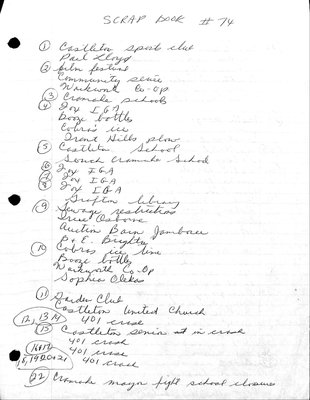 SCRAP BOOK # 74
① Castleton sports club
Paul Lloyd
② film festival
Community service
Warkworth Co-Op
③ Cramahe schools
④ Joy IGA
Booze bottles
Cobras ice
Trent Hills plow
⑤ Castleton School
South Cramahe School
⑥ Joy IGA
⑦ Joy IGA
⑧ Joy IGA
Grafton library
⑨ Sewage restrictions
Osborne
Auction Barn Jamboree
P. & E. Brighton
⑩ Cobras ice time
Booze bottles
Warkworth Co-Op
Sophia Clekas
⑪ Garden Club
Castleton United Church
12, 13, 14 401 crash
⑮ Castleton senior at in crash
16+17 401 crash
401 crash
18, 19+20+21 401 crash
㉒ Cramahe mayor fight school closures